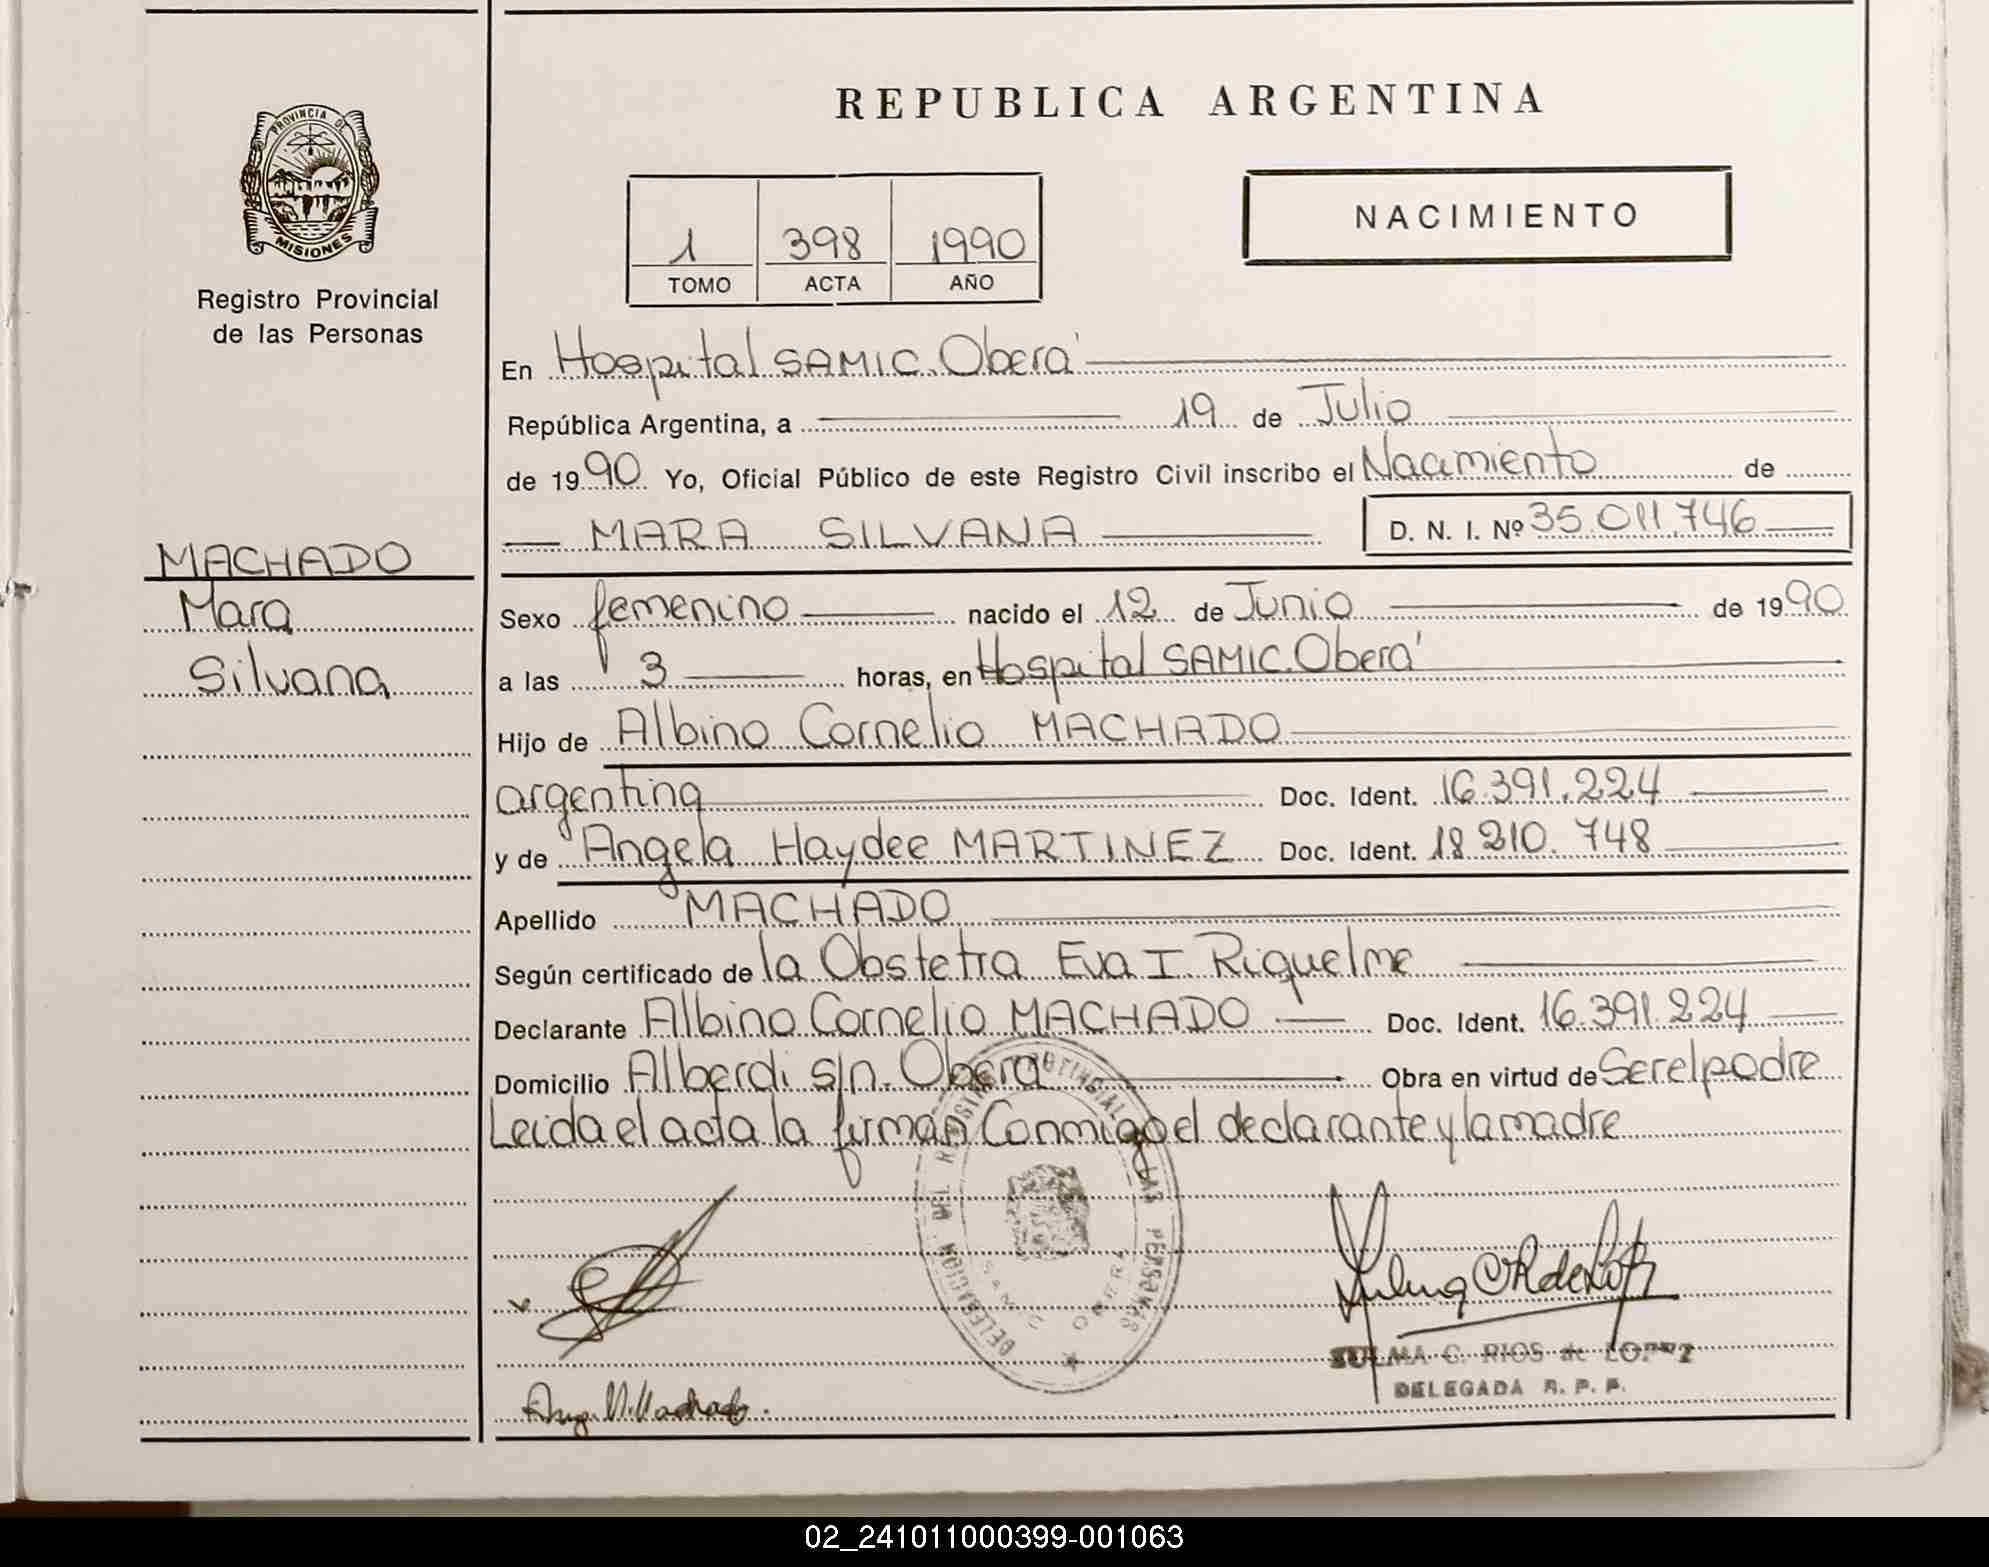 REPUBLICA ARGENTINA
PROVINCIA DE
MISIONES
Registro Provincial
de las Personas
NACIMIENTO
1 398 1990
TOMO ACTA AÑO
En Hospital SAMIC. Oberá
República Argentina, a 19 de Julio
de 1990 Yo, Oficial Público de este Registro Civil inscribo el Nacimiento de
MARA SILVANA D. N. I. Nº 35.011.746
MACHADO
Mara
Silvana
Sexo femenino nacido el 12 de Junio de 1990
a las 3 horas, en Hospital SAMIC. Oberá
Hijo de Albino Cornelio MACHADO
argentina Doc. Ident. 16.391.224
y de Angela Haydee MARTINEZ Doc. Ident. 18 210. 748
Apellido MACHADO
Según certificado de la Obstetra Eva I. Riquelme
Declarante Albino Cornelio MACHADO Doc. Ident. 16.391.224
Domicilio Alberdi s/n. Oberá Obra en virtud de Ser el padre
Leida el acta la firman Conmigo el declarante y la madre
DELEGACION DEL REGISTRO PROVINCIAL DE LAS PERSONAS
SAMIC OBERA
ZULMA C. RIOS de LOPEZ
DELEGADA R. P. P.
02_241011000399-001063